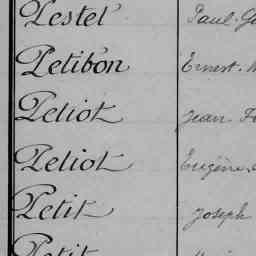 Pestel Paul-
Petibon Ernest.
Petiot Jean
Petiot Eugène
Petit Joseph
Petit